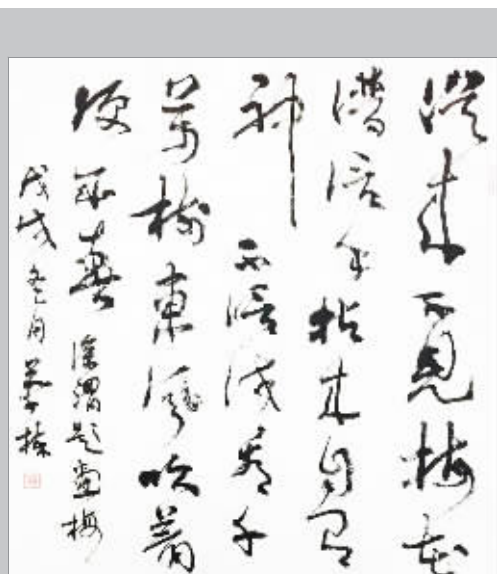 從来不見梅花
譜信手拈来自有
神不信試看千
萬樹東風吹着
便春徐渭題畫梅
戊戌冬月